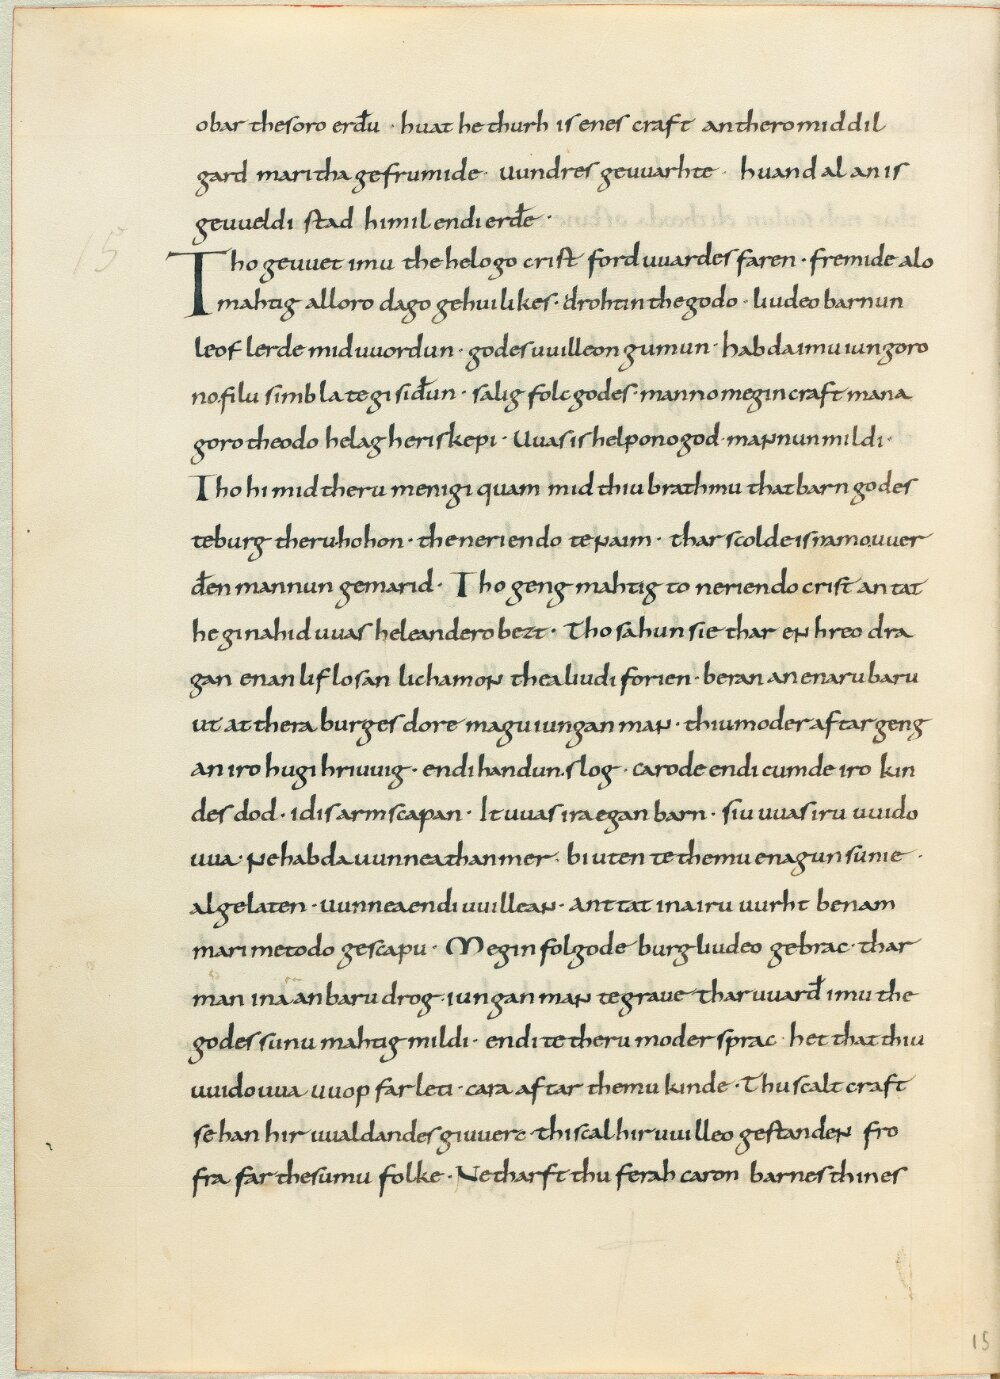 obar thesoro erđu · huat he thurh is enes craft an thero middil
gard maritha gefrumide · uundres geuuarhte · huand al an is
geuueldi stad himil endi erđe ·
15
Tho geuuet imu the helogo crist forđ uuardes faren · fremide alo
mahtig alloro dago gehuilikes · drohtin the godo · liudeo barnun
leof lerde mid uuordun · godes uuilleon gumun · habda imu iungoro
no filu simbla te gisiđun · salig folc godes · manno megin craft mana
goro theodo helag heriskepi · Uuas is helpono god · mannun mildi ·
Tho hi mid theru menigi quam mid thiu brathmu that barn godes
te burg theru hohon · the neriendo te naim · thar scolde is namo uuer
đen mannun gemarid · Tho geng mahtig to neriendo crist antat
he ginahid uuas heleandero bezt · Tho sahun sie thar en hreo dra
gan enan lif losan lichamon thea liudi forien · beran an enaru baru
ut at thera burges dore magu iungan man · thiu moder aftar geng
an iro hugi hriuuig · endi handun slog · carode endi cumde iro kin
des dod · idis armscapan · It uuas ira egan barn · siu uuas iru uuido
uua · ne habda uunnea than mer · biuten te themu enagun sunie ·
al gelaten · uunnea endi uuillean · anttat ina iru uurht benam
mari metodo gescapu · Megin folgode burgliudeo gebrac · thar
man ina an baru drog · iungan man te graue thar uuarđ imu the
godes sunu mahtig mildi · endi te theru moder sprac · het that thiu
uuidouua uuop farleti · cara aftar themu kinde · Thu scalt craft
sehan hir uualdandes giuuerc · thi scal hir uuilleo gestanden fro
fra far thesumu folke · Ne tharft thu ferah caron barnes thines
15